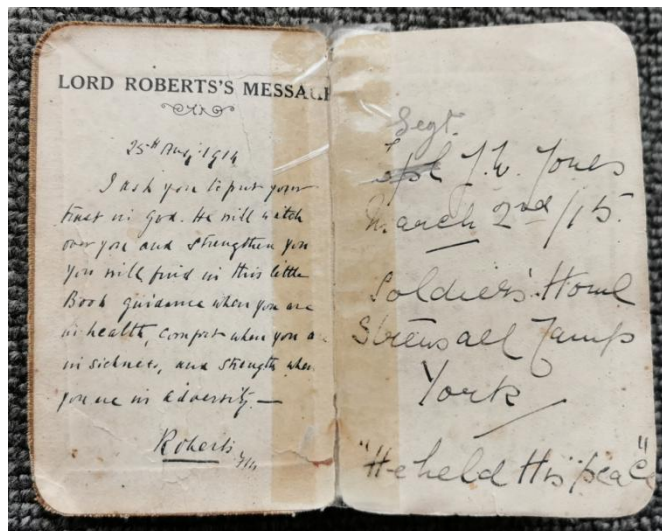 LORD ROBERTS'S MESSAGE
25th Aug 1914
I ask you to put your
trust in God. He will watch
over you and strengthen you
You will find in this little
Book guidance when you are
in health, comfort when you a
in sickness, and strength when
you are in adversity.—
Roberts
Sergt.
J. W. Jones
March 2nd/15.
Soldiers' Home
Strensall Camp
York
"He held His peace"